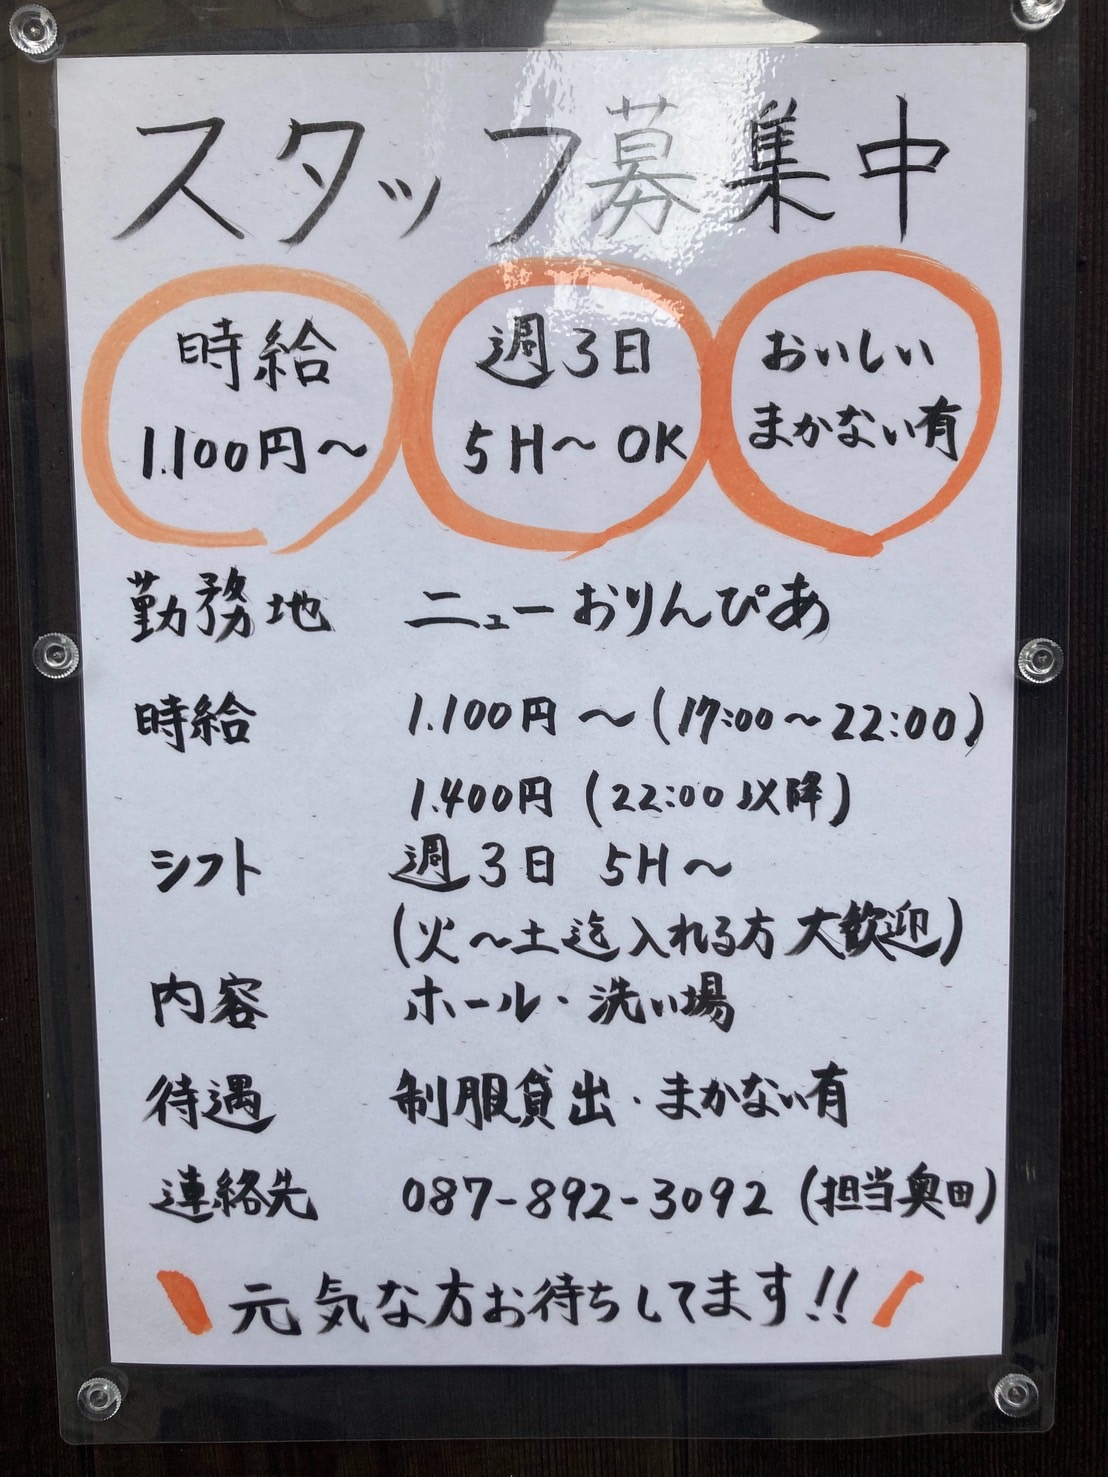 スタッフ募集中
時給
1.100円～
週3日
5H～OK
おいしい
まかない有
勤務地 ニューおりんぴあ
時給 1.100円～(17:00～22:00)
1.400円 (22:00以降)
シフト 週3日 5H～
(火～土迄入れる方大歓迎)
内容 ホール・洗い場
待遇 制服貸出・まかない有
連絡先 087-892-3092 (担当奥田)
元気な方お待ちしてます!!